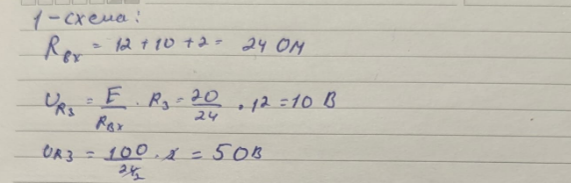 1-схема:
Rвх = 12 + 10 + 2 = 24 ОМ
UR3 = E/Rвх · R3 = 20/24 · 12 = 10 В
UR3 = 100/24 · = 50В